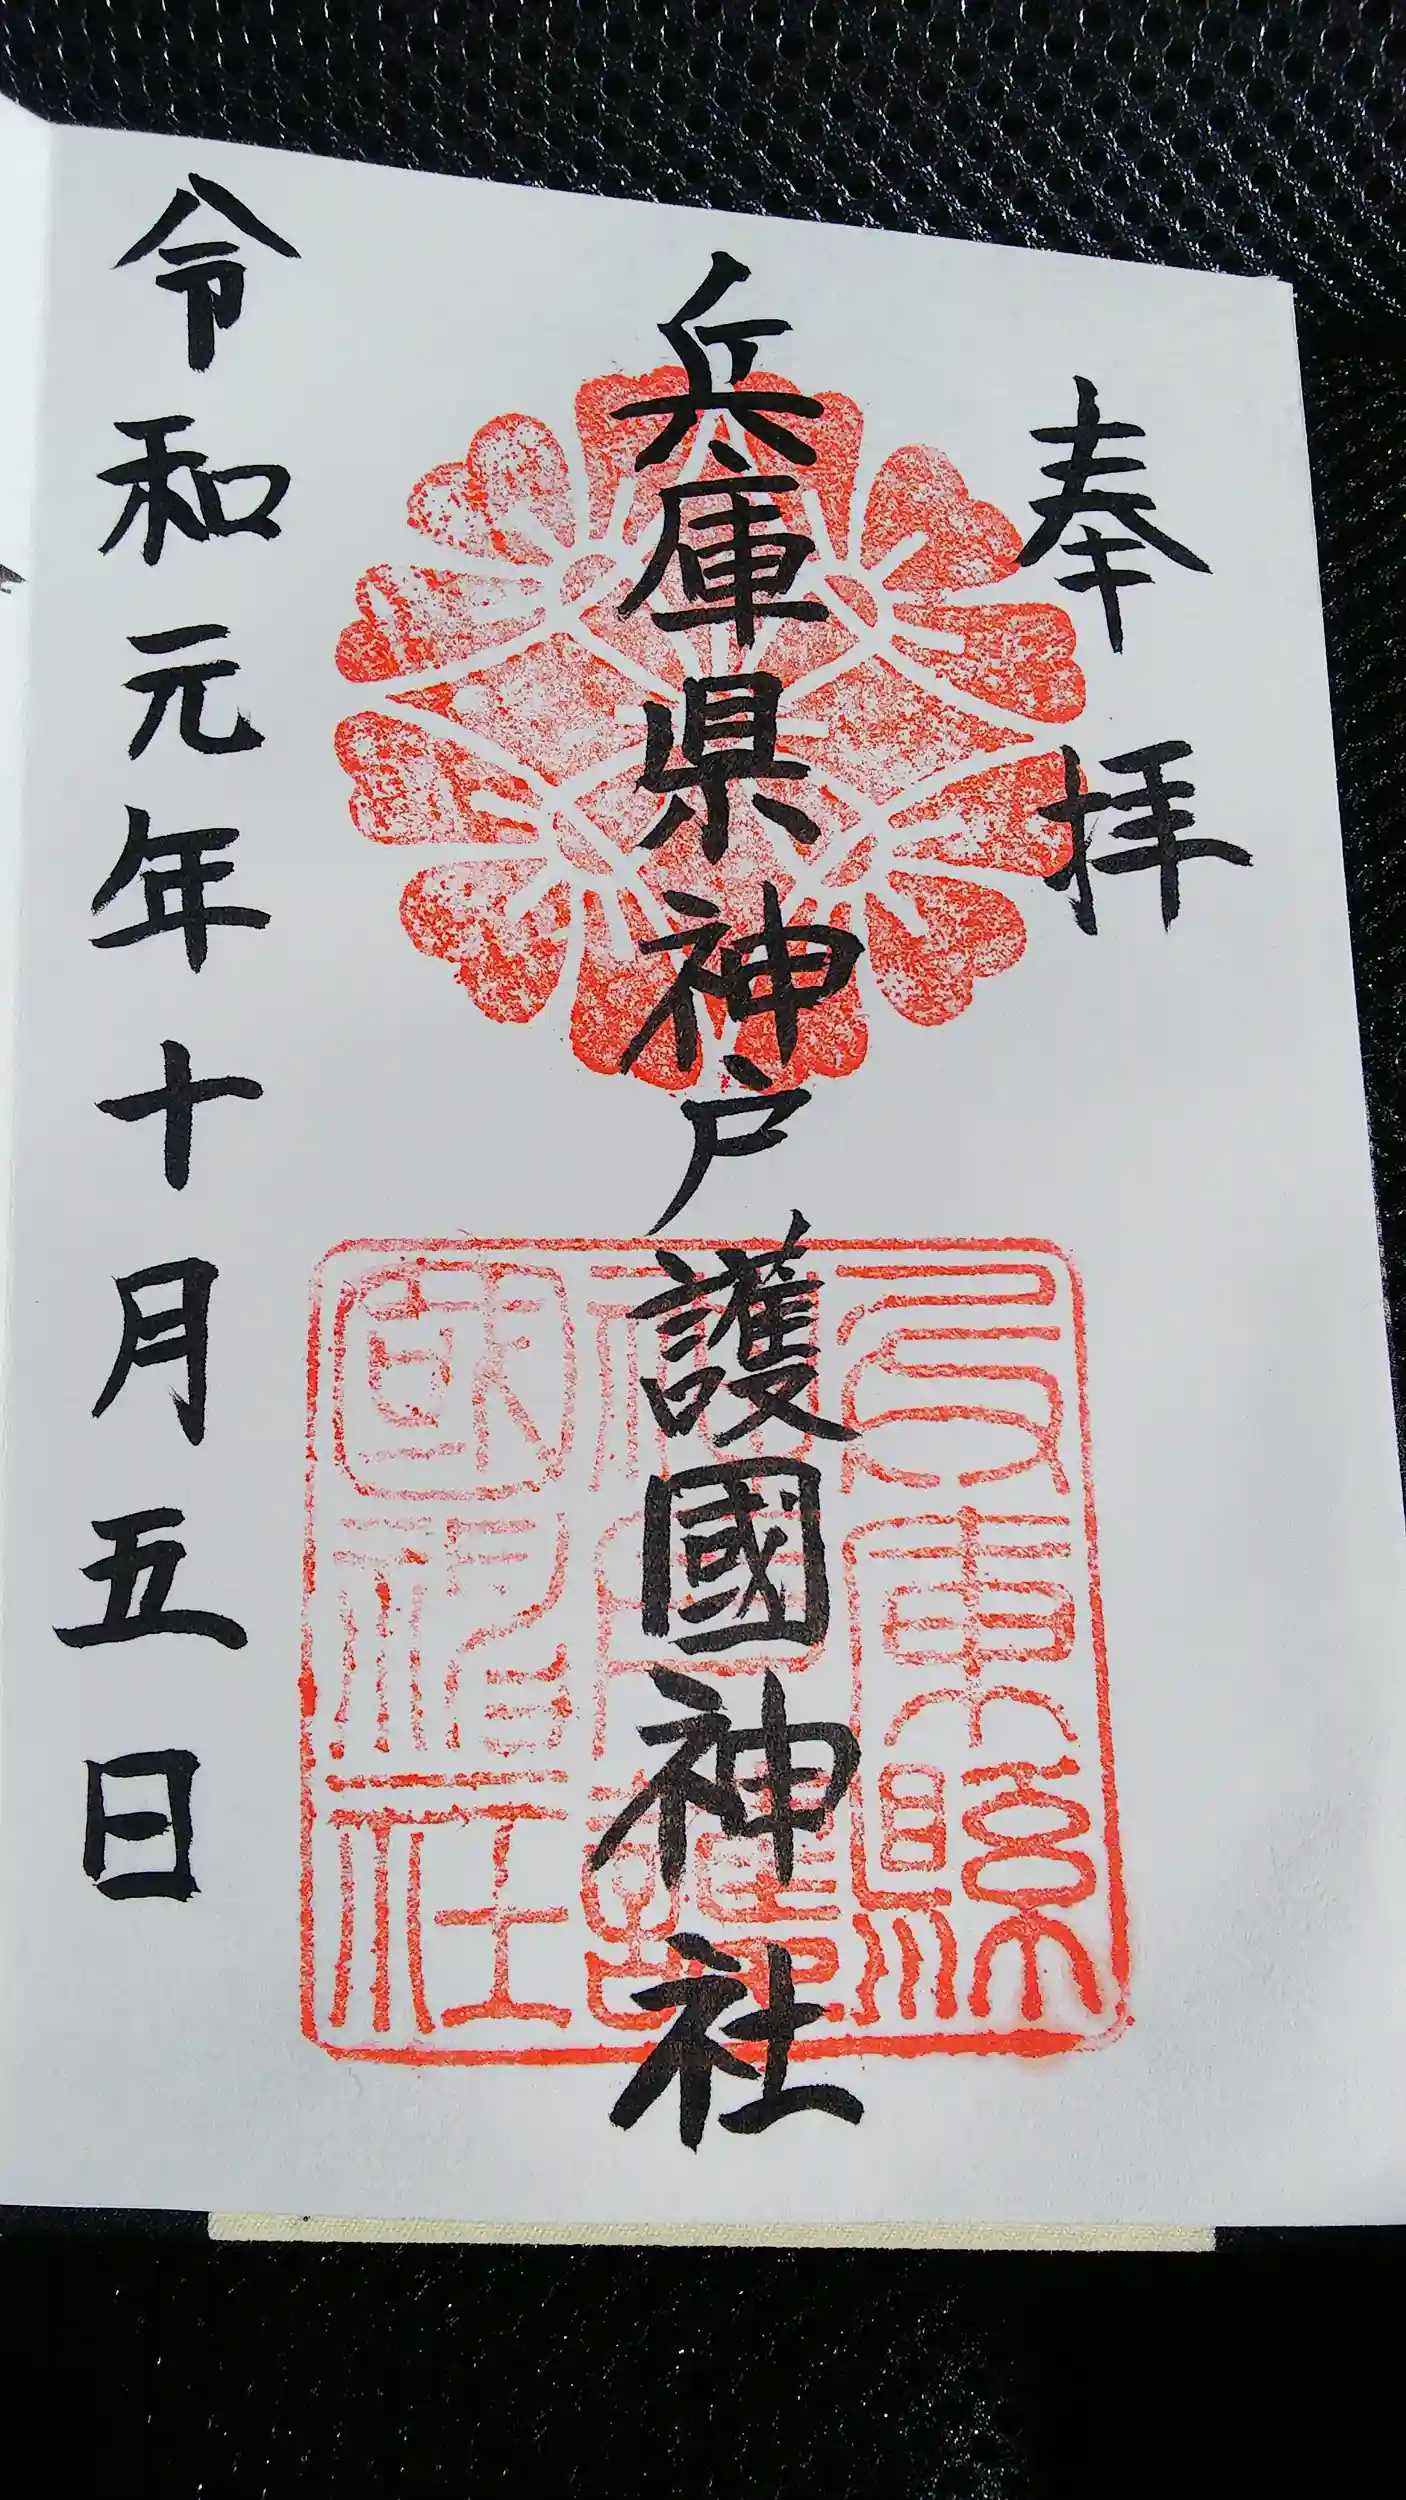 奉拝
兵庫県神戸護國神社
兵庫縣
神戸護
國神社
令和元年十月五日